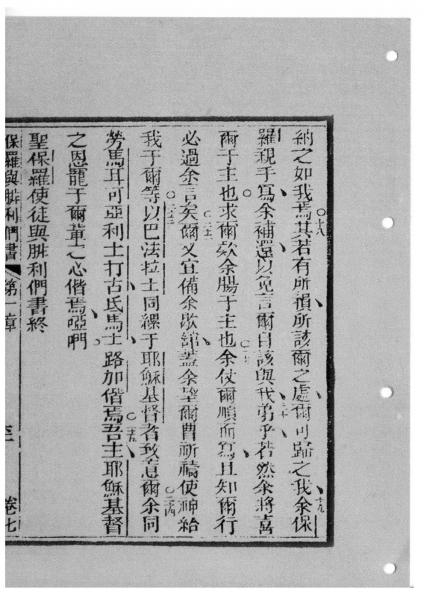 納之如我焉其若有所損所該爾之處爾可歸之我余保
羅親手寫余補還以免言爾自該與我弟乎若然余將喜
爾于主也求爾欵余腸于主也余仗爾順而寫且知爾行
必過余言矣爾又宜備余歇舘蓋余望爾曹祈禱使神給
我于爾等以巴法拉士同縲于耶穌基督者致意爾余同
勞馬耳可亞利士打古氏馬士路加偕焉吾主耶穌基督
之恩寵于爾輩之心偕焉啞們
聖保羅使徒與腓利們書終
保羅與腓利們書 第一章 三 卷七